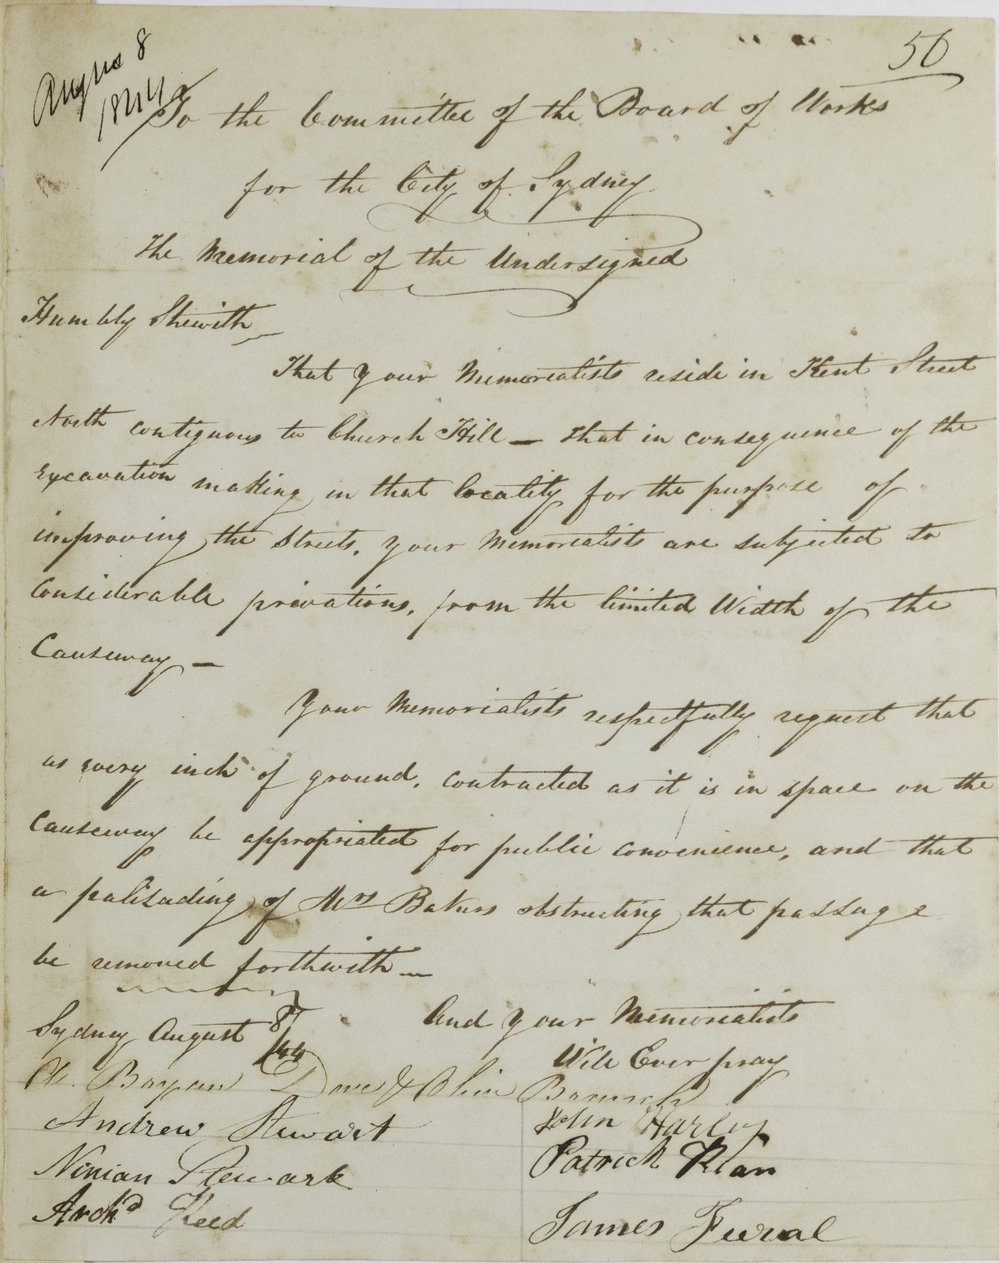 56
August 8
1844
To the Committee of the Board of Works
for the City of Sydney
The Memorial of the Undersigned
Humbly Shewith
That your Memorialists reside in Kent Street
North contiguous to Church Hill — that in consequence of the
Excavation making in that locality for the purpose of
improving the Streets, your Memorialists are subjected to
Considerable privations, from the limited Width of the
Causeway —
Your Memorialists respectfully request that
as every inch of ground, contracted as it is in space on the
Causeway be appropriated for public convenience, and that
a palisading of Mrs Bakers obstructing that passage
be removed forthwith —
And your Memorialists
Will Ever pray
Sydney August 8th /44
Andrew Stewart
John Harley
Ninian
Patrick
Archd Reed
James